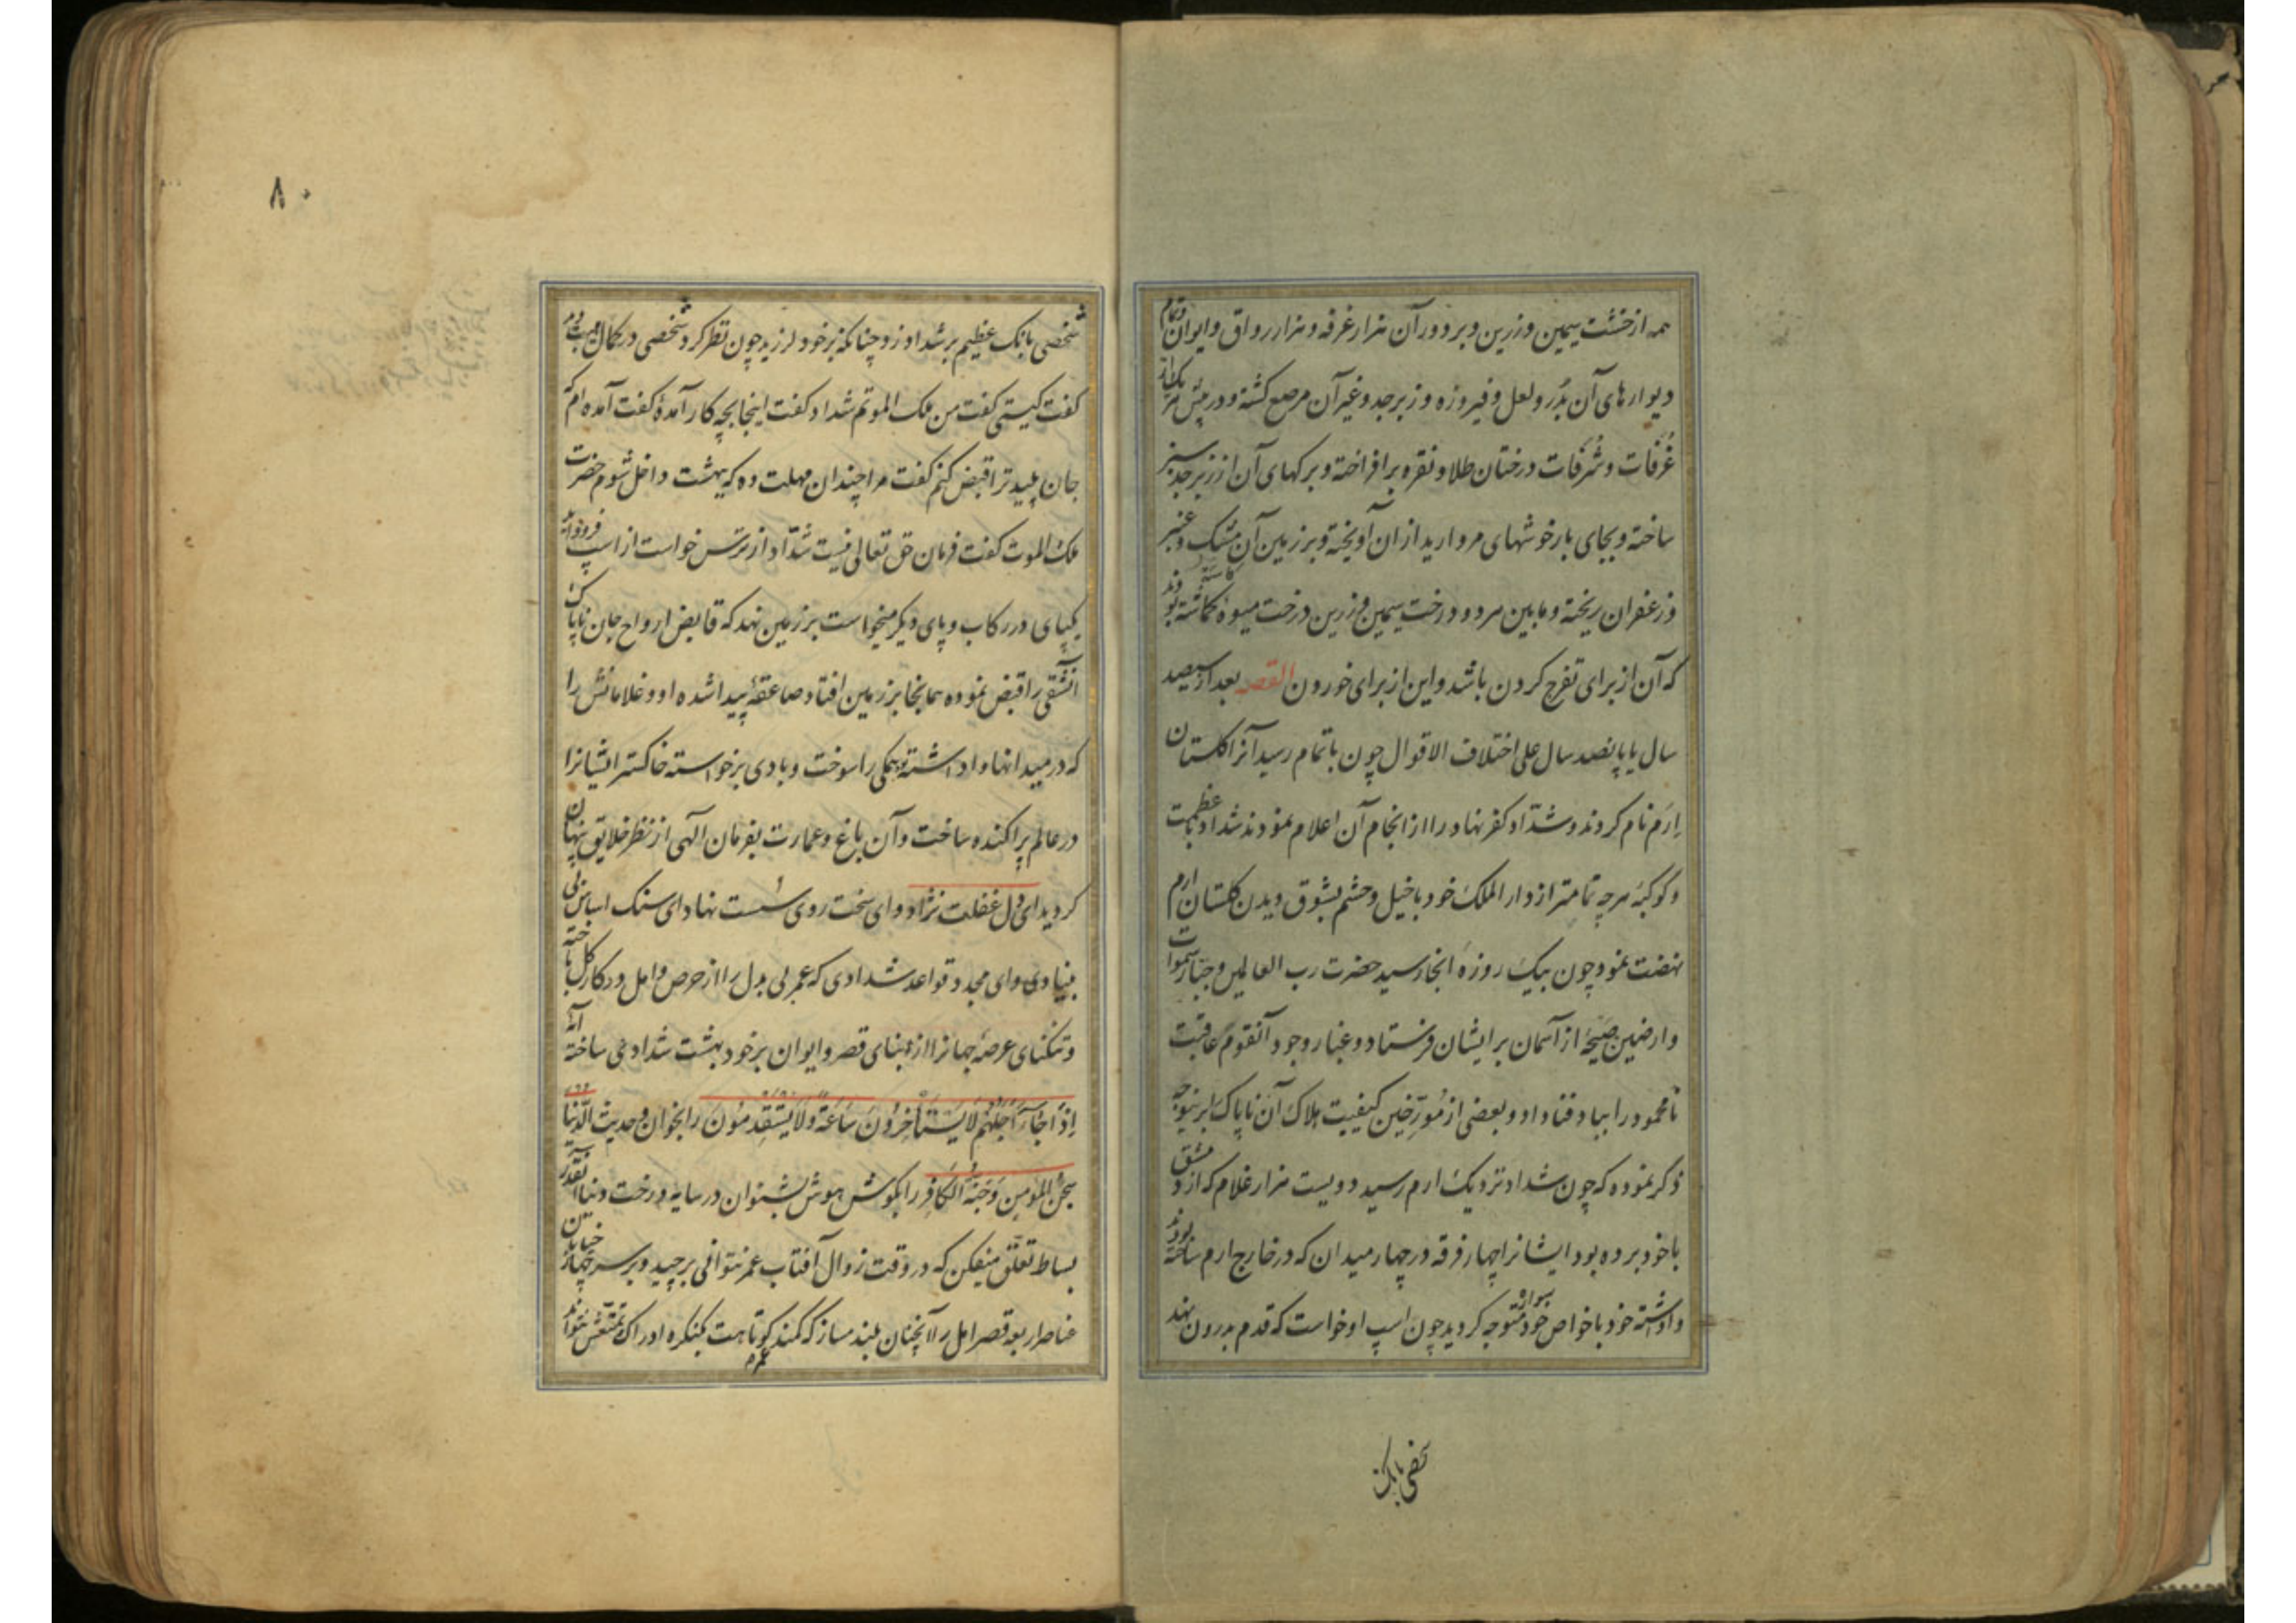 همه از خشت سیمین و زرین و بر دور آن هزار غرفه و هزار رواق و ایوان و تمام
دیوارهای آن بدُر و لعل و فیروزه و زبرجد و غیر آن مرصع کشته و در پیش هر یک از
غُرفات و شُرفات درختان طلا و نقره برافراخته و برکهای آن از زبرجد سبز
ساخته و بجای بار خوشهای مروارید از ان آویخته و بر زمین آن مشک و عنبر
و زعفران ریخته و مابین هر دو درخت سیمین و زرین درخت میوه کاشته بودند
که آن از برای تفرج کردن باشد و این از برای خوردن القصه بعد از سیصد
سال یا پانصد سال علی اختلاف الاقوال چون باتمام رسید آنرا کلستان
اِرَم نام کردند و شدّاد کفر نهاد را از انجام آن اعلام نمودند شداد با عظمت
و کوکبهٔ هر چه تمامتر از دار الملک خود با خیل و حشم بشوق دیدن کلستان ارم
نهضت نمود چون بیک روزهٔ انجا رسید حضرت رب العالمین و جبّار سموات
و ارضین صَیحهٔ از آسمان بر ایشان فرستاد و غبار وجود آنقوم عاقبت
نامحمود را بباد فنا داد و بعضی از مُورّخین کیفیت هلاک آن ناپاک را برینوجه
ذکر نموده که چون شداد نزدیک ارم رسید دویست هزار غلام که از دمشق
با خود برده بود ایشانرا چهار فرقه در چهار میدان که در خارج ارم ساخته بودند
واداشته خود با خواص خود سواره متوجه کردید چون اسپ او خواست که قدم بدرون نهد
شخصی بانک
۸۰
شخصی بانک عظیم بر شداد زد چنانکه بر خود لرزید چون نظر کرد شخصی در کمال هیبت دید
کفت کیستی کفت من ملک الموتم شداد کفت اینجا بچه کار آمدهٔ کفت آمده ام که
جان پلید ترا قبض کنم کفت مرا چندان مهلت ده که ببهشت داخل شوم حضرت
ملک الموت کفت فرمان حق تعالی نیست شدّاد از ترس خواست از اسپ فرود آید
یکپای در رکاب و پای دیکر میخواست بر زمین نهد که قابض ارواح جان ناپاک
آنشقی را قبض نموده همانجا بر زمین افتاد صاعقهٔ پیدا شده او و غلامانش را
که در میدانها واداشته بود همکی را سوخت و بادی برخواسته خاکستر ایشانرا
در عالم پراکنده ساخت و آن باغ و عمارت بفرمان الهی از نظر خلایق پنهان
کردید ای دل غفلت نژاد و ای سخت روی سُست نهاد ای سنک اساس بی
بنیادی و ای مجدد قواعد شدادی که عمر بی بدل را از حرص و امل در کار کل باخته
و تنکنای عرصهٔ جهانرا از بنای قصر و ایوان بر خود بهشت شدادی ساخته آیهٔ
اِذَا جَاءَ اَجَلُهُم لَا یَستَأخِرُونَ سَاعَةً وَلَا یَستَقدِمُونَ را بخوان و حدیث الدّنیا
سِجنُ المؤمِنِ وَجَنَّةُ الکَافِرِ را بکوش هوش بشنو ان در سایه درخت دنیا آنقدر
بساط تعلّق میفکن که در وقت زوال آفتاب عمر نتوانی برچید و بر سر چهار خیابان
عناصر اربعه قصر امل را آنچنان بلند مساز که کمند کوتاه عمرت بکنکره ادراک تمتعش نتواند